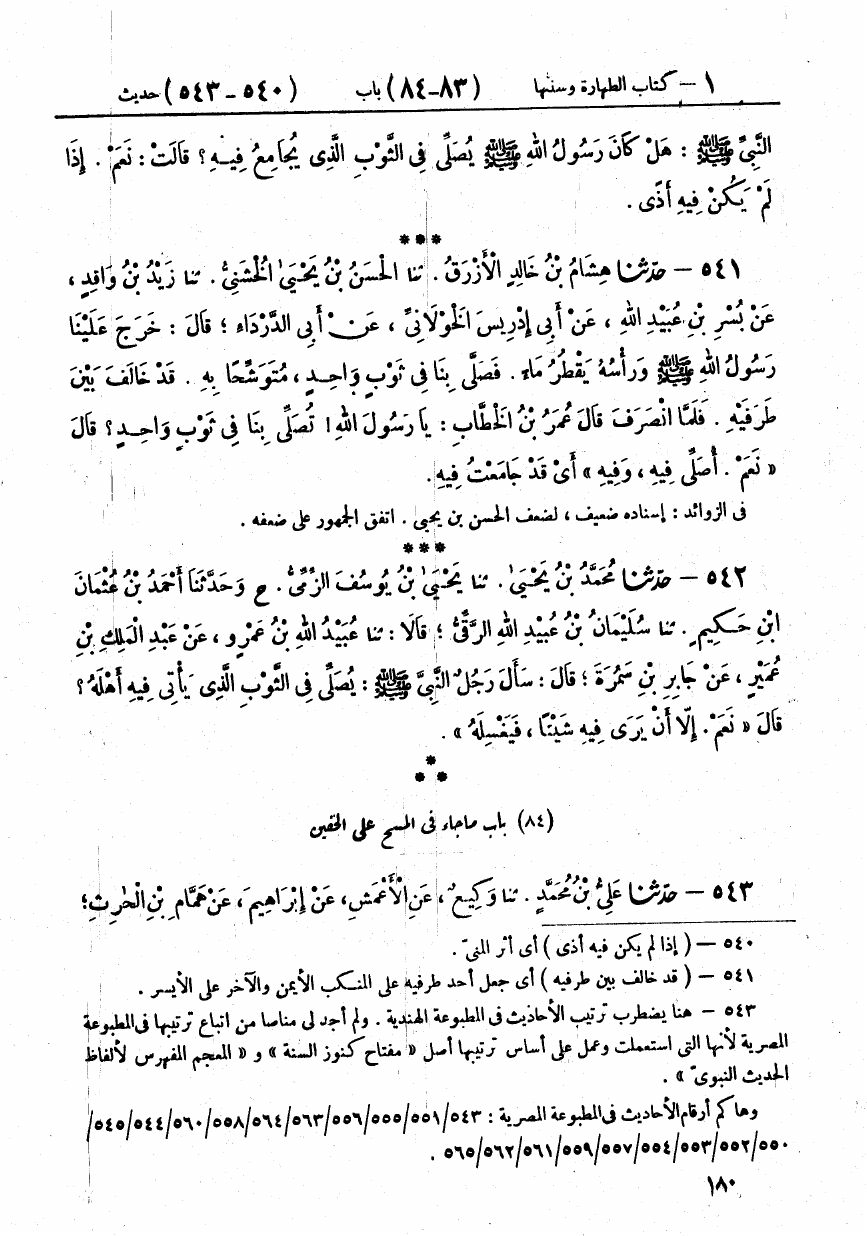 ١ – كتاب الطهارة وسننها (٨٣-٨٤) باب (٥٤٠ - ٥٤٣) حديث
النَّبِىِّ ﷺ : هَلْ كَانَ رَسُولُ اللهِ ﷺ يُصَلِّى فِى الثَّوْبِ الَّذِى يُجَامِعُ فِيهِ؟ قَالَتْ : نَعَمْ . إِذَا
لَمْ يَكُنْ فِيهِ أَذًى .
***
٥٤١ – حدّثنا هِشَامُ بْنُ خَالِدٍ الْأَزْرَقُ . ثنا الْحَسَنُ بْنُ يَحْيَىٰ الْخُشَنِىُّ . ثنا زَيْدُ بْنُ وَاقِدٍ ،
عَنْ بُسْرِ بْنِ عُبَيْدِ اللهِ ، عَنْ أَبِى إِدْرِيسَ الْخَوْلَانِىِّ ، عَنْ أَبِى الدَّرْدَاءِ ؛ قَالَ : خَرَجَ عَلَيْنَا
رَسُولُ اللهِ ﷺ وَرَأْسُهُ يَقْطُرُ مَاءً . فَصَلَّى بِنَا فِى ثَوْبٍ وَاحِدٍ ، مُتَوَشِّحًا بِهِ . قَدْ خَالَفَ بَيْنَ
طَرَفَيْهِ . فَلَمَّا انْصَرَفَ قَالَ عُمَرُ بْنُ الْخَطَّابِ : يَا رَسُولَ اللهِ! تُصَلِّى بِنَا فِى ثَوْبٍ وَاحِدٍ؟ قَالَ
« نَعَمْ . أُصَلِّى فِيهِ ، وَفِيهِ » أَىْ قَدْ جَامَعْتُ فِيهِ .
فى الزوائد : إسناده ضعيف ، لضعف الحسن بن يحيى . اتفق الجمهور على ضعفه .
***
٥٤٢ – حدّثنا مُحَمَّدُ بْنُ يَحْيَىٰ . ثنا يَحْيَىٰ بْنُ يُوسُفَ الزِّمِّىُّ . ح وَحَدَّثَنَا أَحْمَدُ بْنُ عُثْمَانَ
ابْنِ حَكِيمٍ . ثنا سُلَيْمَانُ بْنُ عُبَيْدِ اللهِ الرَّقِّىُّ ؛ قَالَا : ثنا عُبَيْدُ اللهِ بْنُ عَمْرٍو ، عَنْ عَبْدِ الْمَلِكِ بْنِ
عُمَيْرٍ ، عَنْ جَابِرِ بْنِ سَمُرَةَ ؛ قَالَ : سَأَلَ رَجُلٌ النَّبِىَّ ﷺ : يُصَلِّى فِى الثَّوْبِ الَّذِى يَأْتِى فِيهِ أَهْلَهُ؟
قَالَ « نَعَمْ . إِلَّا أَنْ يَرَى فِيهِ شَيْئًا ، فَيَغْسِلَهُ » .
***
(٨٤) باب ماجاء فى المسح على الخفين
٥٤٣ – حدّثنا عَلِىُّ بْنُ مُحَمَّدٍ . ثنا وَكِيعٌ ، عَنِ الْأَعْمَشِ ، عَنْ إِبْرَاهِيمَ ، عَنْ هَمَّامِ بْنِ الْحٰرِثِ ؛
٥٤٠ – ( إذا لم يكن فيه أذى ) أى أثر المنىّ .
٥٤١ – ( قد خالف بين طرفيه ) أى جعل أحد طرفيه على المنكب الأيمن والآخر على الأيسر .
٥٤٣ – هنا يضطرب ترتيب الأحاديث فى المطبوعة الهندية . ولم أجد لى مناصا من اتباع ترتيبها فى المطبوعة
المصرية لأنها التى استعملت وعمل على أساس ترتيبها أصل « مفتاح كنوز السنة » و « المعجم المفهرس لألفاظ
الحديث النبوىّ » .
وهاكم أرقام الأحاديث فى المطبوعة المصرية : ٥٤٣/٥٥١/٥٥٥/٥٥٦/٥٦٣/٥٦٤/٥٥٨/٥٦٠/٥٤٤/٥٤٥/
٥٥٠/٥٥٢/٥٥٣/٥٥٤/٥٥٧/٥٥٩/٥٦١/٥٦٢/٥٦٥ .
١٨٠